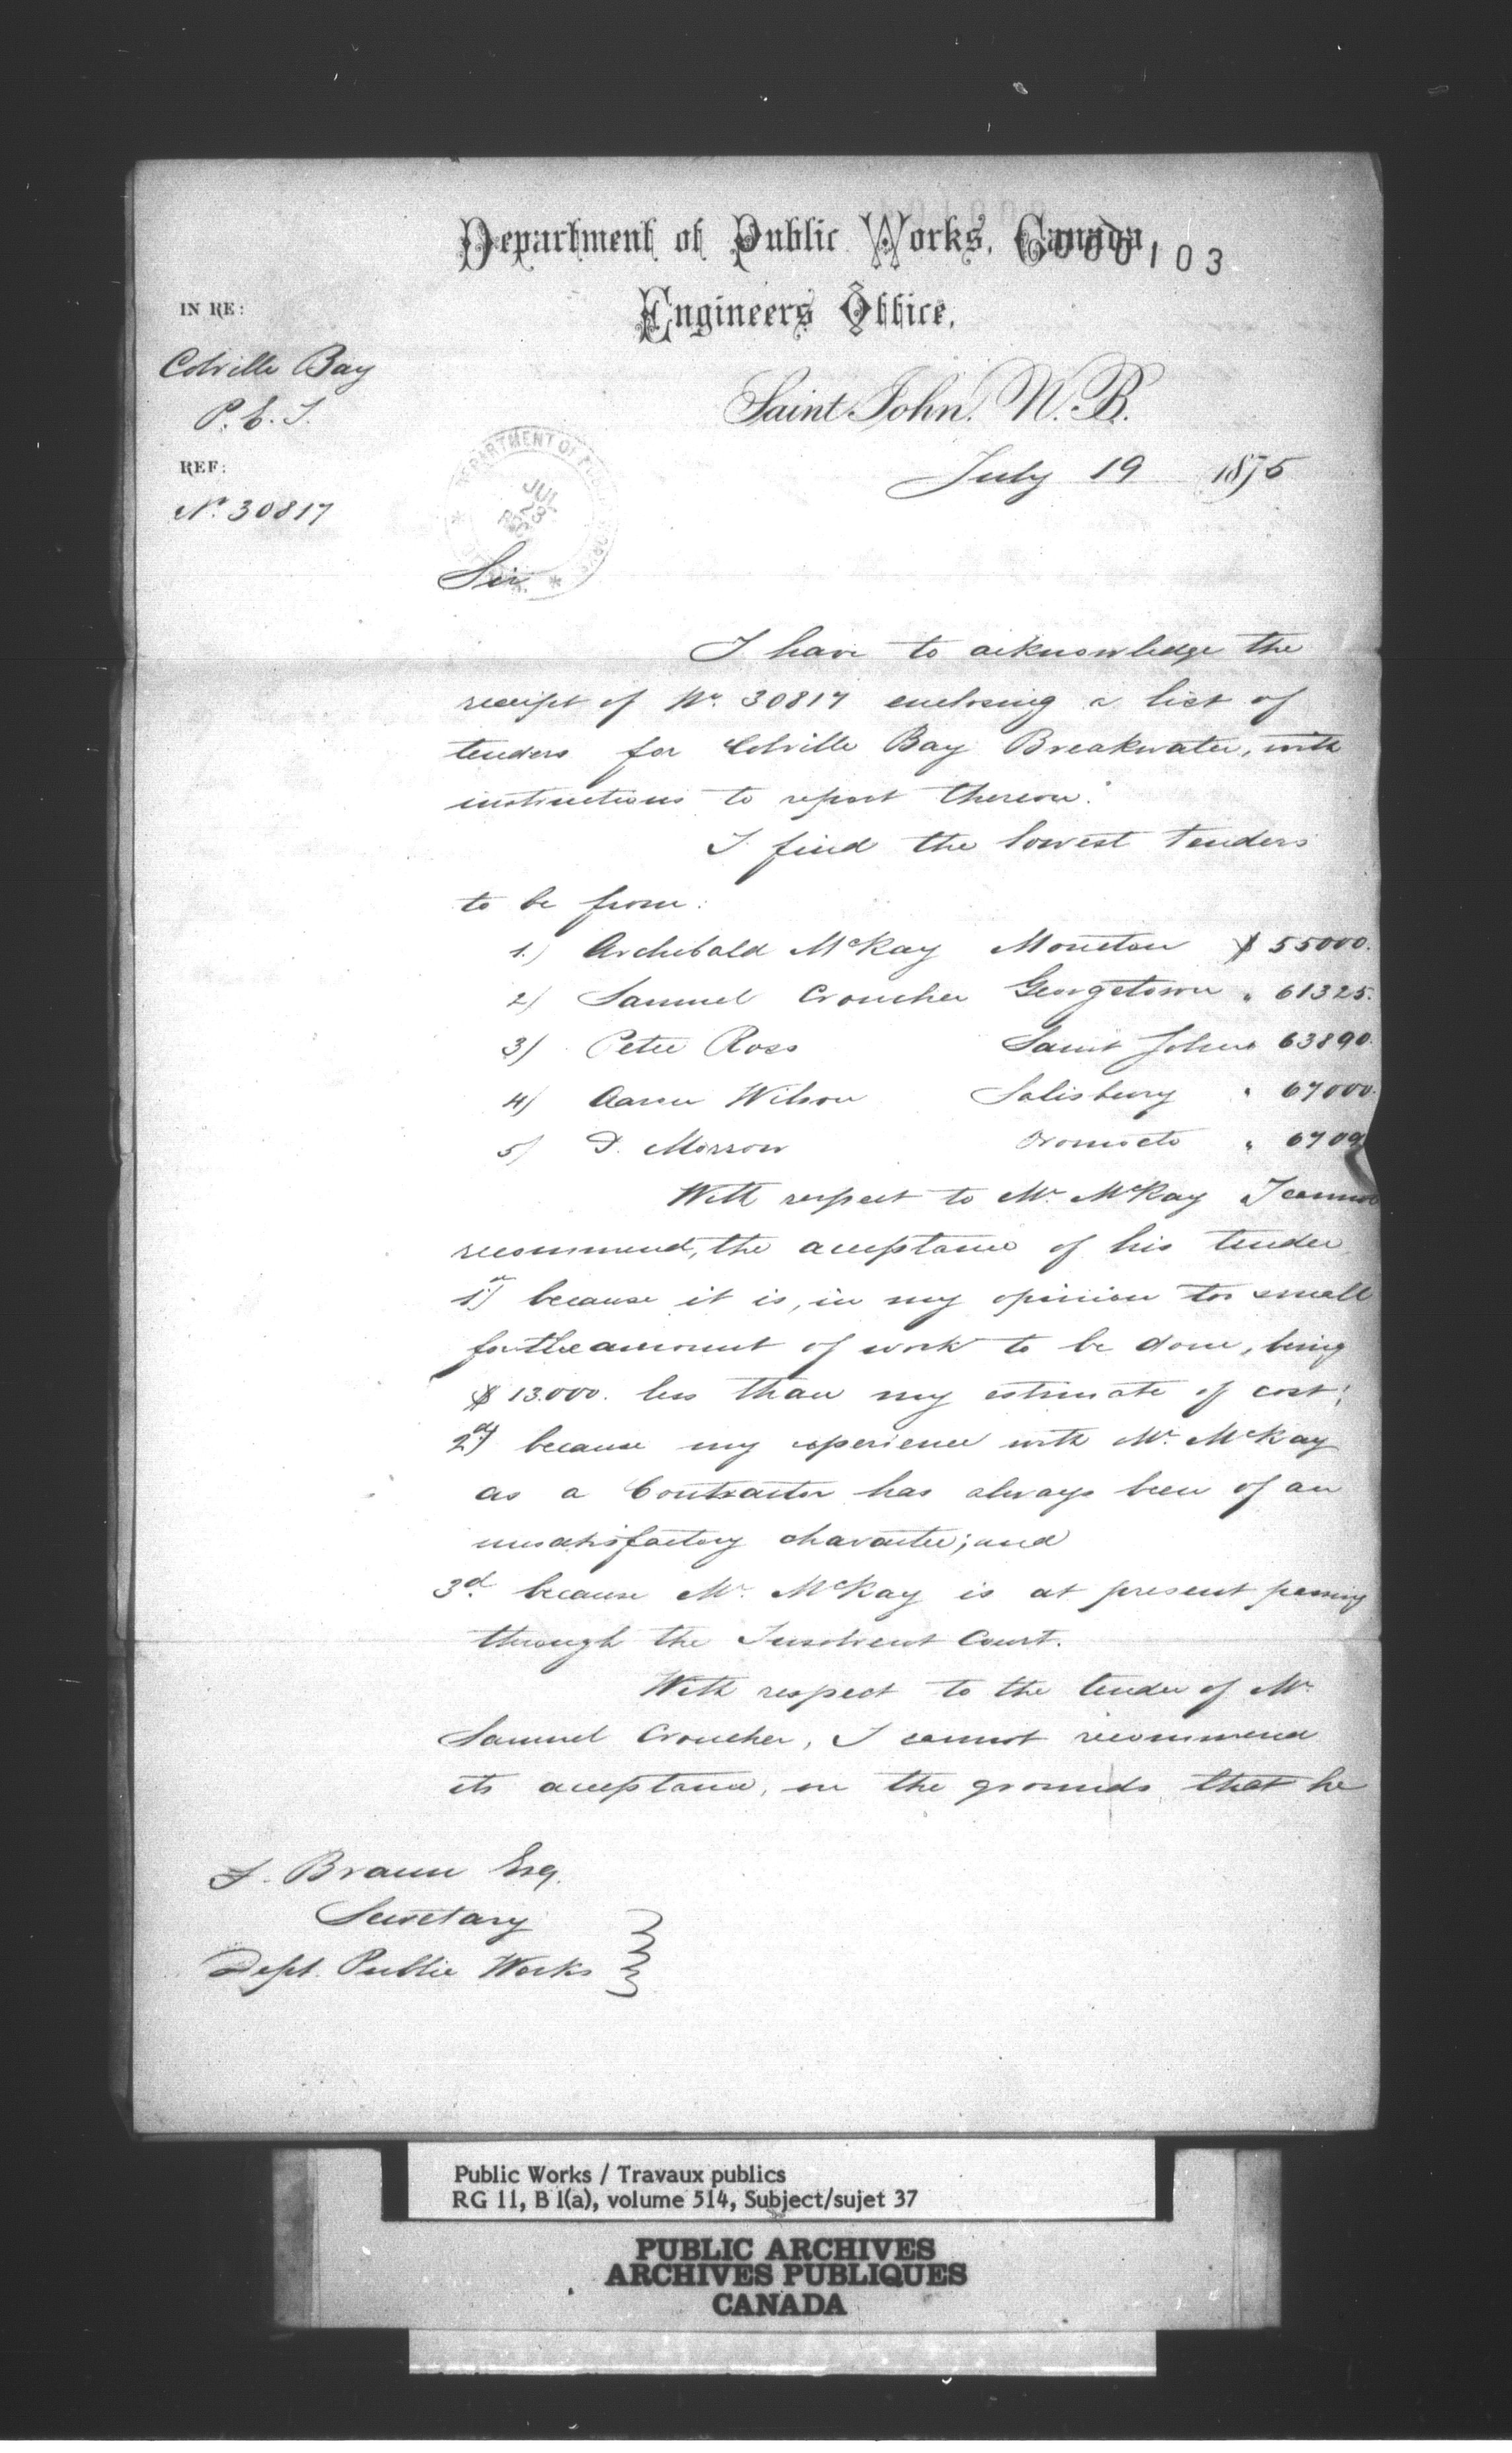 Department of Public Works, Canada,
000103
Engineers Office,
IN RE:
Colville Bay
P. E. I.
Saint John, N.B.
REF:
No. 30817
July 19 1875
DEPARTMENT OF PUBLIC WORKS
JUL
23
Sir
I have to acknowledge the
receipt of No. 30817 enclosing a list of
tenders for Colville Bay Breakwater, with
instructions to report thereon.
I find the lowest tenders
to be from:
1.) Archibald McKay Moncton $ 55000.
2) Samuel Croucher Georgetown " 61325.
3) Peter Ross Saint John " 63890.
4) Aaron Wilson Salisbury " 67000.
5) D. Morrow Oromocto " 6709
With respect to Mr. McKay I cannot
recommend, the acceptance of his tender
1st) because it is, in my opinion too small
for the amount of work to be done, being
$ 13.000. less than my estimate of cost;
2d) because my experience with Mr. McKay
as a Contractor has always been of an
unsatisfactory character; and
3d. because Mr. McKay is at present passing
through the Insolvent Court.
With respect to the tender of Mr.
Samuel Croucher, I cannot recommend
its acceptance, on the grounds that he
F. Braun Esq.
Secretary
Dept. Public Works
Public Works / Travaux publics
RG 11, B 1(a), volume 514, Subject/sujet 37
PUBLIC ARCHIVES
ARCHIVES PUBLIQUES
CANADA